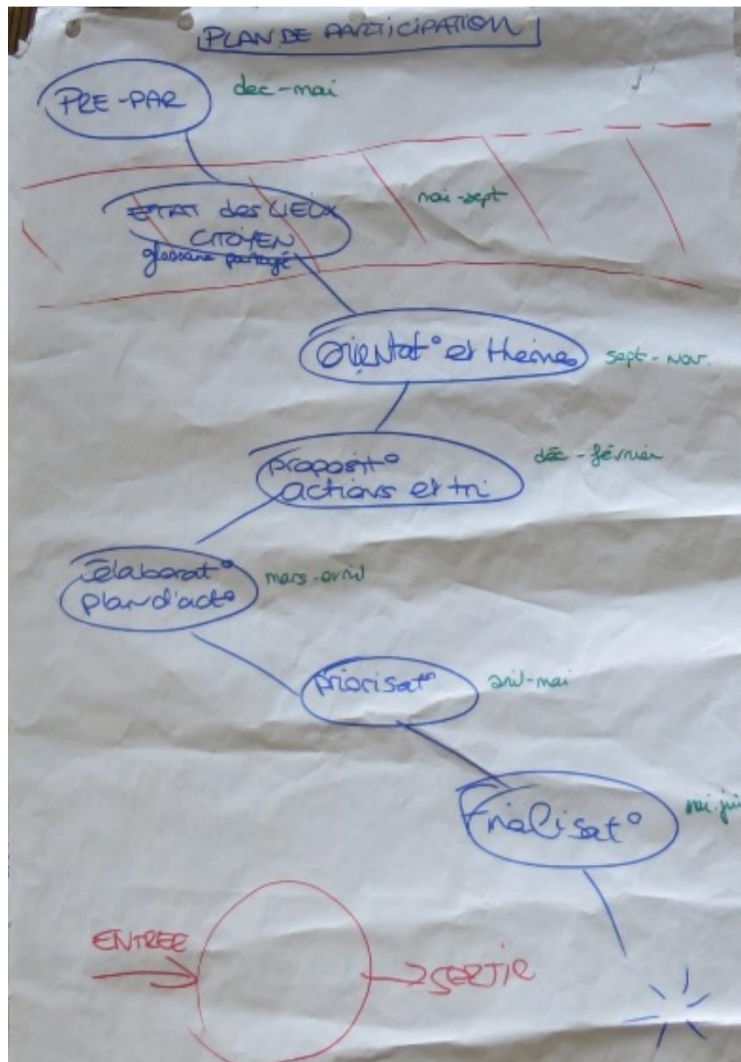 PLAN DE PARTICIPATION
PRE-PAR
dec-mai
ETAT des LIEUX
CITOYEN
glossaire partagé
mai-sept
Orientat° et thèmes
sept-nov.
proposit°
actions et tri
déc-février
élaborat°
plan d'act°
mars-avril
priorisat°
avril-mai
Finalisat°
mai-juin
ENTREE
SORTIE